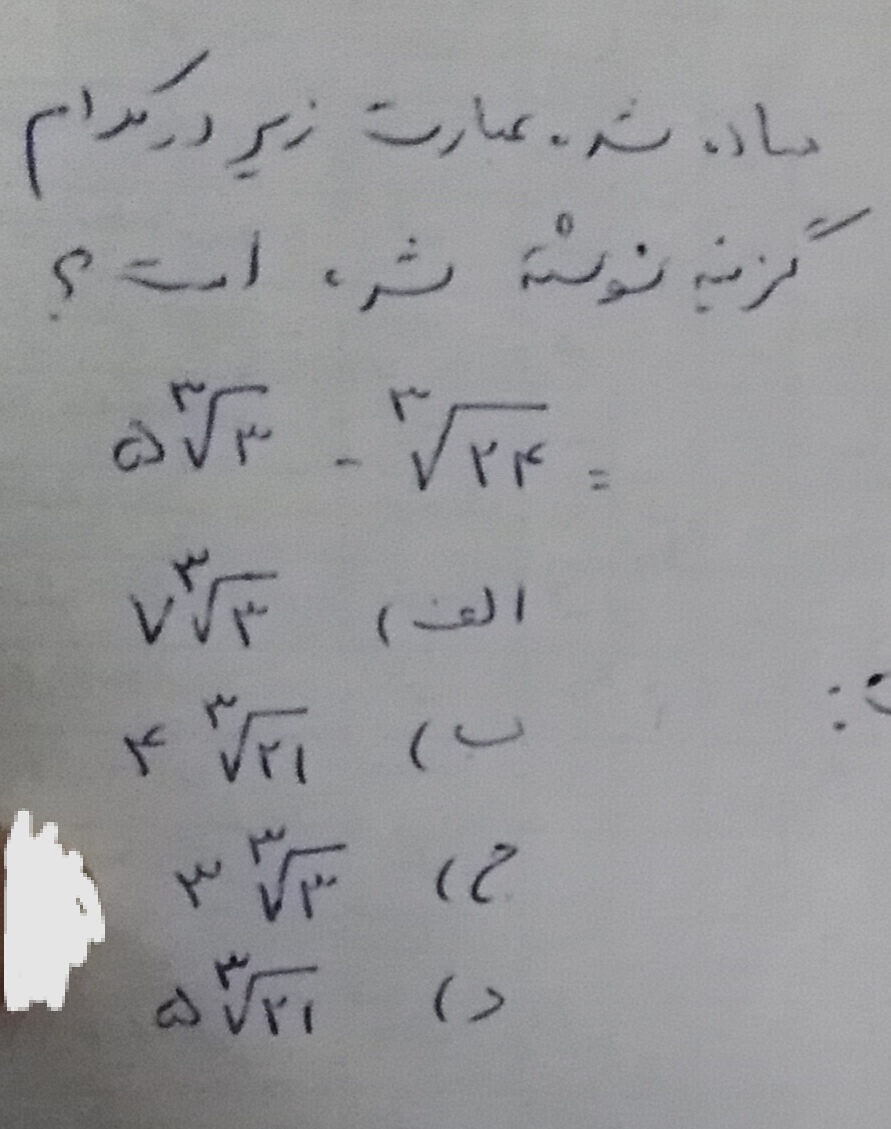 ساده شده عبارت زیر در کدام
گزینه نوشته شده است؟
۵∛۳ - ∛۲۴ =
الف) ۷∛۳
ب) ۴∛۲۱
ج) ۳∛۳
د) ۵∛۲۱